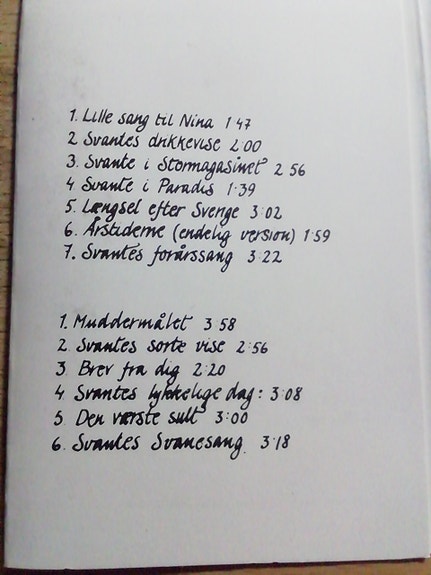 1. Lille sang til Nina 1 47
2 Svantes drikkevise 2 00
3. Svante i Stormagasinet 2 56
4 Svante i Paradis 1.39
5. Længsel efter Sverige 3:02
6. Årstiderne (endelig version) 1:59
7. Svantes forårssang 3:22
1. Muddermålet 3:58
2 Svantes sorte vise 2:56
3 Brev fra dig 2:20
4 Svantes lykkelige dag: 3:08
5 Den værste sult 3:00
6. Svantes Svanesang. 3:18